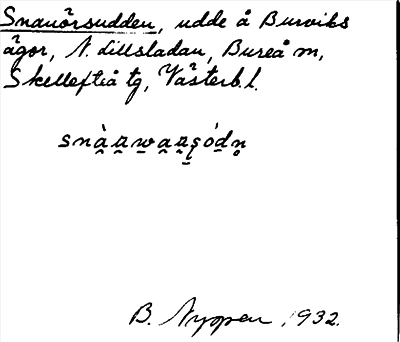 Snauörsudden, udde å Burviks
ägor, N. Lillsladan, Bureå sn,
Skellefteå tg, Västerb. l.
B. Nygren 1932.